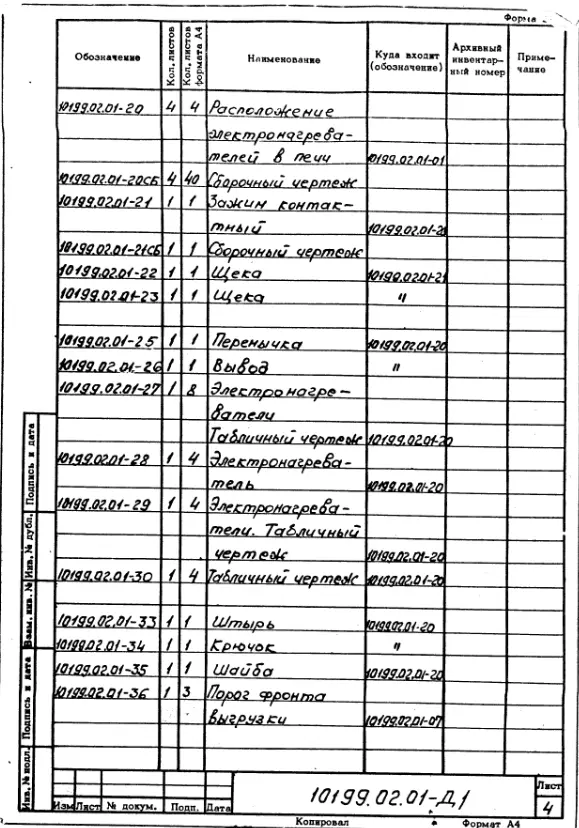 Форма
Обозначение Кол. листов Кол. листов формата А4 Наименование Куда входит (обозначение) Архивный инвентар- ный номер Приме- чание
10199.02.01-20 4 4 Расположение
электронагрева-
телей в печи 10199.02.01-01
10199.02.01-20СБ 4 40 Сборочный чертеж
10199.02.01-21 1 1 Зажим контак-
тный 10199.02.01-20
10199.02.01-21СБ 1 1 Сборочный чертеж
10199.02.01-22 1 1 Щека 10199.02.01-21
10199.02.01-23 1 1 Щека "
10199.02.01-25 1 1 Перемычка 10199.02.01-20
10199.02.01-26 1 1 Вывод "
10199.02.01-27 1 8 Электронагре-
ватели
Табличный чертеж 10199.02.01-20
10199.02.01-28 1 4 Электронагрева-
тель 10199.02.01-20
10199.02.01-29 1 4 Электронагрева-
тели. Табличный
чертеж 10199.02.01-20
10199.02.01-30 1 4 Табличный чертеж 10199.02.01-20
10199.02.01-33 1 1 Штырь 10199.02.01-20
10199.02.01-34 1 1 Крючок "
10199.02.01-35 1 1 Шайба 10199.02.01-20
10199.02.01-36 1 3 Порог фронта
выгрузки 10199.02.01-07
Инв. № подл. Подпись и дата Взам. инв. № Инв. № дубл. Подпись и дата
Изм Лист № докум. Подп. Дата
10199.02.01-Д1
Лист
4
Копировал Формат А4